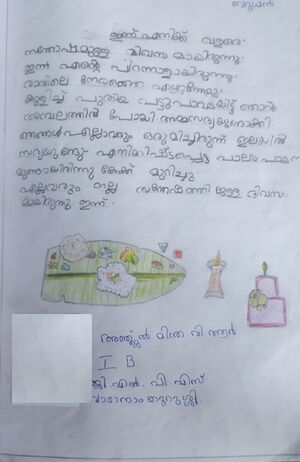 ഇന്ന് എനിക്ക് വളരെ
സന്തോഷമുള്ള ദിവസമായിരുന്നു
ഇന്ന് എന്റെ പിറന്നാളായിരുന്നു
രാവിലെ നേരത്തെ എഴുന്നേറ്റു
കുളിച്ച് പുതിയ പട്ടുപാവടയിട്ട് ഞാൻ
അമ്പലത്തിൽ പോയി
ഞങ്ങൾ എല്ലാവരും ഒരുമിച്ചിരുന്ന് ഇലയിൽ
സദ്യയുണ്ടു എനിക്കിഷ്ടപ്പെട്ട പാലട
മുണ്ടായിരുന്നു കേക്ക് മുറിച്ചു
എല്ലാവരും നല്ല സന്തോഷത്തിലുള്ള ദിവസ
മായിരുന്നു ഇന്ന്.
വി ആർ
I B
ജി എൽ. പി. എസ്